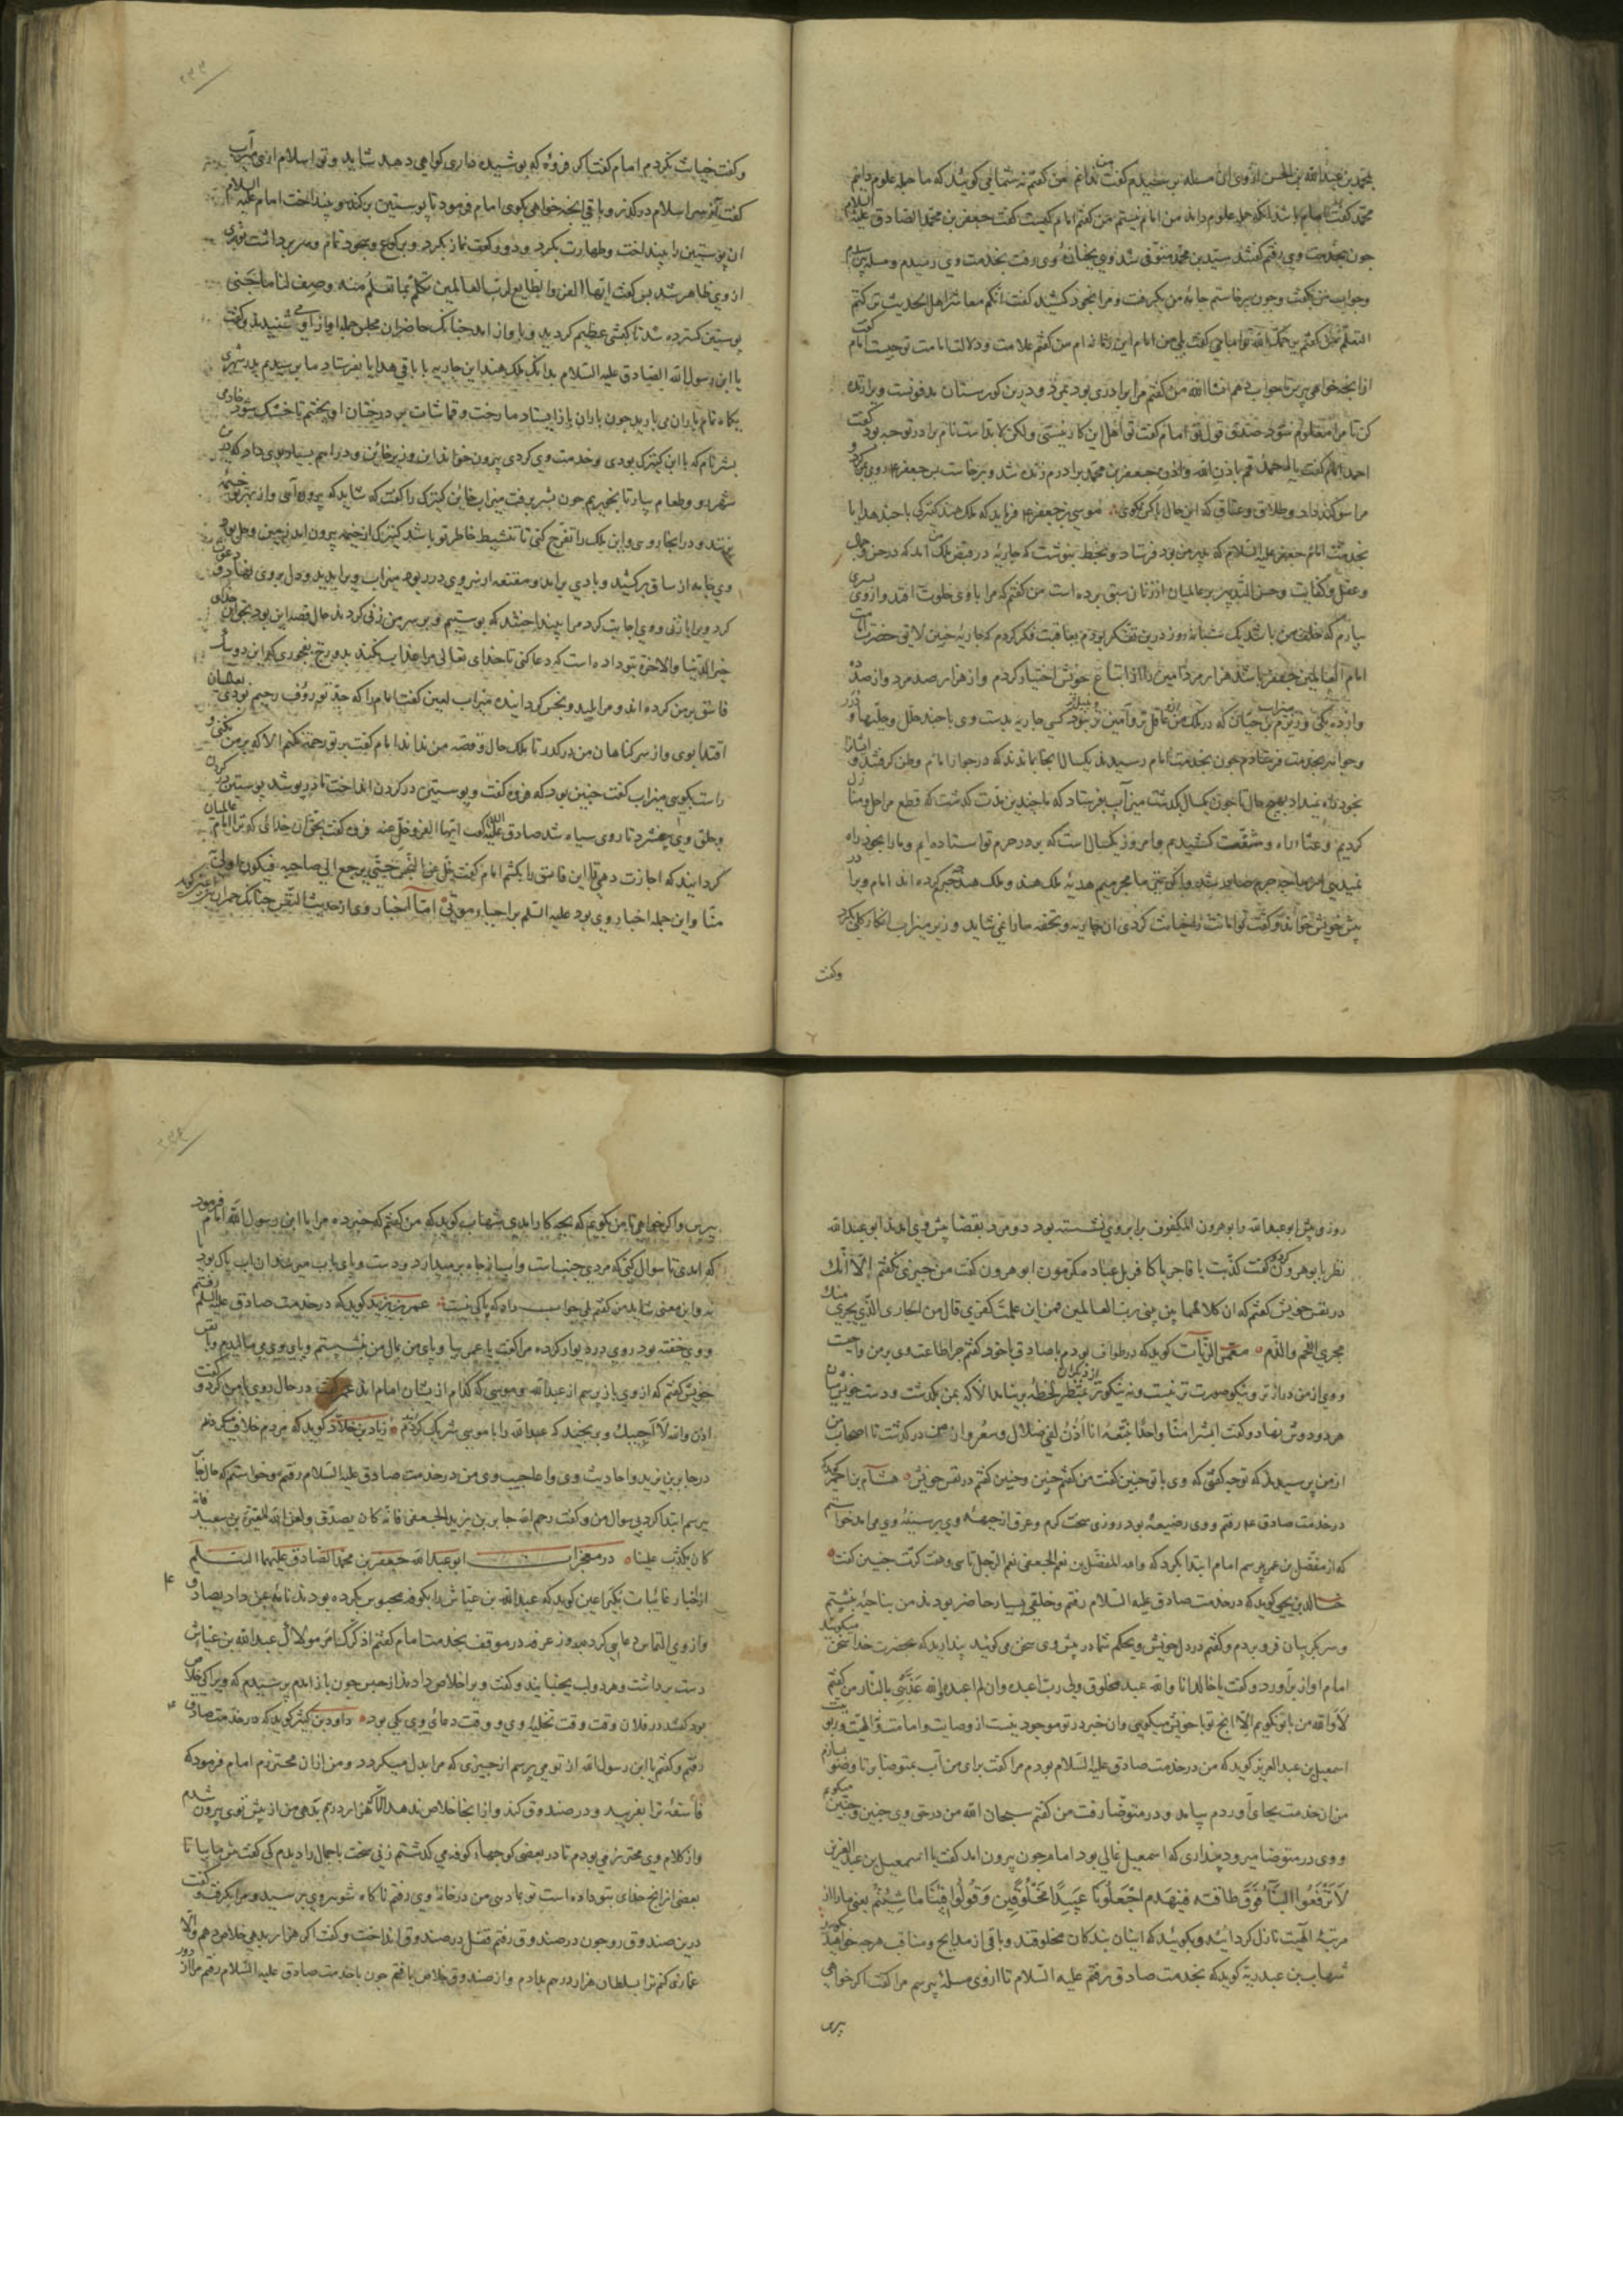 محمد بن عبدالله بن الحسن از وی این مسئله پرسیدم گفت ندانم من گفتم نه شما می گویند که ما جمله علوم دانیم
محمد گفت امام باشد انکه جمله علوم داند من امام نیستم من گفتم امام کیست گفت جعفر بن محمد الصادق علیه السلام
جون بخدمت وی رفتم گفتند سید بن محمد متوفی شد وی بخانهٔ وی رفت بخدمت وی رسیدم و مسئله پرسیدم
وجواب من بگفت وجون برخاستم جامهٔ من بگرفت و مرا بخود کشید گفت انکم معاشر اهل الحدیث ترکتم
العلم من گفتم یرحمک الله تو امامی گفت بلی من امام این زمانه ام من گفتم علامت و دلالت امامت تو جیست امام گفت
از انجه خواهی بپرس تا جواب دهم انشاالله من گفتم مرا برادری بود بمرد و درین کورستان مدفونست ویرا زنده
کن تا مرا معلوم شود صدق قول تو امام گفت تو اهل این کار نیستی ولکن لابد است نام برادر تو جه بود گفت
احمد امام گفت یا احمد قم باذن الله و اذن جعفر بن محمد برادرم زنده شد و برخاست
مرا سوکند داد و طلاق و عتاق که این حال با کس نکوی موسی بن جعفر ع فرماید که ملک هند کنیزکی با جند هدایا
بخدمت امام جعفر علیه السلام که پدر من بود فرستاد و بخط بنوشت که جاریه در قبض ملک من امد که در حسن و جمال
وعقل و کفایت و حسن التدبیر بر عالمیان از زنان سبق برده است من گفتم که مرا با وی خلوت افتد و از وی پسری
بیارم که خلف من باشد یک شبانه روز درین تفکر بودم بعاقبت فکر کردم که جاریهٔ جنین لایق حضرت امامت
امام العالمین جعفر باشد هزار مرد امین را از اتباع خویش اختیار کردم و از هزار صد مرد و از صد ده
و از ده یکی و زیرم بن حبان که در ملک من عاقل تر و امین تر نبود کسی جاریه بدست وی با جند حلل و حلیها و درر
وجواهر بخدمت فرستادم جون بخدمت امام رسیدند یکسال بجا بماندند که در جوار امام وطن کرفتند و ایشانرا
بخود راه نمیداد بهیج حال تا جون یکسال بکذشت میزاب بفرستاد که ما جندین مدت کذشت که قطع مراحل و منازل
کردیم و عناء راه و مشقت کشیدیم و امروز یکسال است که بر در حرم تو استاده ایم و ما را بخود راه
نمیدهی
پیش خویش خواند و گفت تو امانت را خیانت کردی ان جاریه و تحفه ما را نمی شاید وزیر میزاب انکار کلی بکرد
وکفت
وکفت خیانت نکردم امام گفت اکر فروهٔ که پوشیده داری کواهی دهد شاید و تو اسلام اری میزاب
گفت از سر اسلام درکذر و باقی انجه خواهی بکوی امام فرمود تا پوستین برکند و بینداخت امام علیه السلام
ان پوستین را بینداخت و طهارت بکرد و دو رکعت نماز بکرد و برکوع و سجود تمام و سر برداشت نوری
از وی ظاهر شد پس گفت ایها الفرو الطایع لرب العالمین تکلم بما تعلم منه وصف لنا ما یجنی
پوستین کسترده شد تا کبشی عظیم کردید و باواز امد جنانک حاضران مجلس جمله اواز او می شنیدند بکفت
یا ابن رسول الله الصادق علیه السلام بدانک ملک هند این جاریه با باقی هدایا بفرستاد ما برسیدیم بدر شهری
یکاه نام باران می بارید جون باران باز ایستاد ما رخت و قماشات بر درختان اویختم تا خشک شود خادمی
بشر نام که با این کنیزک بودی و خدمت وی کردی بیرون خواند این وزیر خاین و دراهم بسیار بوی داد که در
شهر رو و طعام بیار تا بخوریم جون بشر برفت میزاب خاین کنیزک را گفت که شاید که بیرون آئی و از بهر تو خیمهٔ
بزنند و در انجا روی و این ملک را تفرج کنی تا تنشیط خاطر تو باشد کنیزک از خیمه بیرون امد زمین وحل بود
وی جامه از ساق برکشید و بادی برامد و مقنعه از سر وی در ربود میزاب ویرا بدید و دل بوی
کرد ویرا با زنی و وی اجابت کرد مرا بینداختند که پوستینم و بر سر من زنی کردند حال قصه این بود بحق ان خدای
خیر الدنیا والاخرة بتو داده است که دعا کنی تا خدای تعالی مرا عذاب نکند بدوزخ بفجوری که این دو ناپاک
فاسق بر من کرده اند و مرا پلید و نجس کردانیده میزاب لعین گفت امام را که جد تو رؤف رحیم بودی بعالمیان
اقتدا بوی و از سر کناهان من درکذر تا ملک حال و قصه من نداند امام گفت بر تو رحمت نکنم الا که بر من
راست بکوئی میزاب گفت جنین بود که فروه گفت و پوستین در کردن انداخت تا در پوشد پوستین در کردن
وحلق وی بیفشرد تا روی سیاه شد صادق علیه السلام گفت ایها الفرو خل عنه فروه گفت بحق ان خدائی که ترا امام عالمیان
کردانید که اجازت دهی تا این فاسق را بکشم امام گفت خل عن النجس حتی یرجع الی صاحبه فیکون اولی
منا واین جمله اخبار وی بود علیه السلم بر احیاء موتی اما اخبار وی از حدیث النفس جنانک حمران
روزی پیش ابوعبدالله و ابوهرون المکفوف برابر وی نشسته بود دو مرد بقضا پیش وی امدند ابوعبدالله
نظر با ابوهرون کرد و گفت کذبت یا فاجر یا کافر بل عباد مکرمون ابوهرون گفت من جیزی نکفتم الا انک
در نفس خویش گفتم که ان کلاهما یعنی رب العالمین فمن این علمت کفری قال من الجاری الذی یجری منک
مجری اللحم والدم معتب الزیات کوید که در طواف بودم با صادق با خود گفتم جرا طاعت وی بر من واجبست
و وی از من دراز تر و نیکو صورت تر نیست و نه نیکوتر بمنظر از دیکران لحظهٔ بر نیامد الا که بمن بکذشت و دست خویش میان
هر دو دوش نهاد و گفت ابشرا منا واحدا نتبعه انا اذن لفی ضلال وسعر و از من درکذشت تا اصحاب من
از من پرسیدند که توجه گفتی که وی با تو جنین گفت من گفتم جنین و جنین گفتم در نفس خویش هشام بن احمر کوید
در خدمت صادق ع رفتم و وی در ضیعه بود روزی سخت کرم و عرق از جبههٔ وی بر سینهٔ وی می امد خواستم
که از مفضل بن عمر پرسم امام ابتدا بکرد که والله المفضل بن نعم الجعفی نعم الرجل تا سی و هفت کرت جنین گفت
خالد بن یحیی کوید که در خدمت صادق علیه السلام رفتم و خلقی بسیار حاضر بودند من بناحیه بنشستم
و سر بکریبان فرو بردم و گفتم در دل خویش ویحکم شما در پیش وی سخن می کوئید پندارید که بحضرت خدا سخن میکوئید
امام اواز براورد و گفت یا خالد انا والله عبد مخلوق ولی رب اعبده وان لم اعبده والله عذبنی بالنار من گفتم
لا والله من با تو نکویم الا انج تو با خویش میکویی وان خبر در تو موجود نیست از وصایت و امامت و الهیت و ربوبیت
اسمعیل بن عبدالعزیز کوید که من در خدمت صادق علیه السلام بودم مرا گفت برای من آب بمتوضا بر تا وضو سازم
من ان خدمت بجای آوردم بیامد و در متوضا رفت من گفتم سبحان الله من در حق وی جنین و جنین میکویم
و وی در متوضا میرود پنداری که اسمعیل غالی بود امام جون بیرون امد گفت یا اسمعیل بن عبدالعزیز
لا ترفعوا البناء فوق طاقته فینهدم اجعلونا عبیدا مخلوقین وقولوا فینا ما شئتم یعنی ما را از
مرتبهٔ الهیت نازل کردانید و بکویید که ایشان بندکان مخلوقند و باقی از مدایح و مناقب هرجه خواهید کویید
شهاب بن عبد ربه کوید که بخدمت صادق رفتم علیه السلام تا از وی مسئلهٔ پرسم مرا گفت اکر خواهی
بپرس
بپرس و اکر خواهی تا من بکویم که بجه کار امدی شهاب کوید که من گفتم که خبر ده مرا یا ابن رسول الله امام فرمود
که امدی تا سوال کنی که مردی جنب است و آب از جاه برمیدارد و دست وی باب میرسد ان اب پاک بود یا
نه و این معنی شاید من گفتم بلی جواب داد که باکی نیست عمر بن یزید کوید که در خدمت صادق علیه السلم رفتم
و وی خفته بود روی در دیوار کرده مرا گفت یا عمر بیا و پای من بمال من بنشستم و پای وی می مالیدم و با نفس
خویش گفتم که از وی باز پرسم از عبدالله و موسی که کدام از ایشان امام اند در حال روی با من کرد و گفت
اذن والله لا اجیبک و برنجیدند که عبدالله را با موسی شریک کردم زیاد بن خلاد کوید که مردم خلاف میکردند
در جابر بن یزید و احادیث وی و اعاجیب وی من در خدمت صادق علیه السلام رفتم و خواستم که حال جابر
بپرسم ابتدا کرد بی سوال من و گفت رحم الله جابر بن یزید الجعفی فانه کان یصدق ولعن الله المغیرة بن سعید فانه
کان یکذب علینا در معجزات ابوعبدالله جعفر بن محمد الصادق علیهما السلم
از اخبار غائبات بکیر اعین کوید که عبدالله بن عباس را بکوفه محبوس بکرده بودند نامهٔ بمن داد بصادق ع
و از وی التماس دعایی کرده روز عرفه در موقف بخدمت امام گفتم اذکرک امر مولاک عبدالله بن عباس
دست برداشت و هر دو لب بجنبانید و گفت ویرا خلاص دادند از حبس جون باز امدم پرسیدم که ویرا کی خلاص
بود گفتند در فلان وقت وقت تخلیهٔ وی و وقت دعائی وی یکی بود داود بن کثیر کوید که در خدمت صادق ع
رفتم و گفتم یا ابن رسول الله از تو می پرسم از جیزی که مرا بدل میکردد و من از ان محترزم امام فرمود که
فاسقهٔ ترا بفریبد و در صندوق کند و از انجا خلاص ندهد الا بهزار درهم بدهی من از پیش وی بیرون شدم
و از کلام وی محترز می بودم تا در بعضی کوجهاء کوفه می کذشتم زنی سخت باجمال را دیدم که گفت بیا تا
بعضی از انج خدای بتو داده است تو بما دهی من در خانهٔ وی رفتم ناکاه شوهر وی برسید و مرا بکرفت و گفت
درین صندوق رو جون در صندوق رفتم قفل در صندوق انداخت و گفت اکر هزار بدهی خلاص دهم و الا
غمازی کنم ترا بسلطان هزار درهم بدادم و از صندوق خلاص یافتم جون باخدمت صادق علیه السلام رفتم مرا از دور